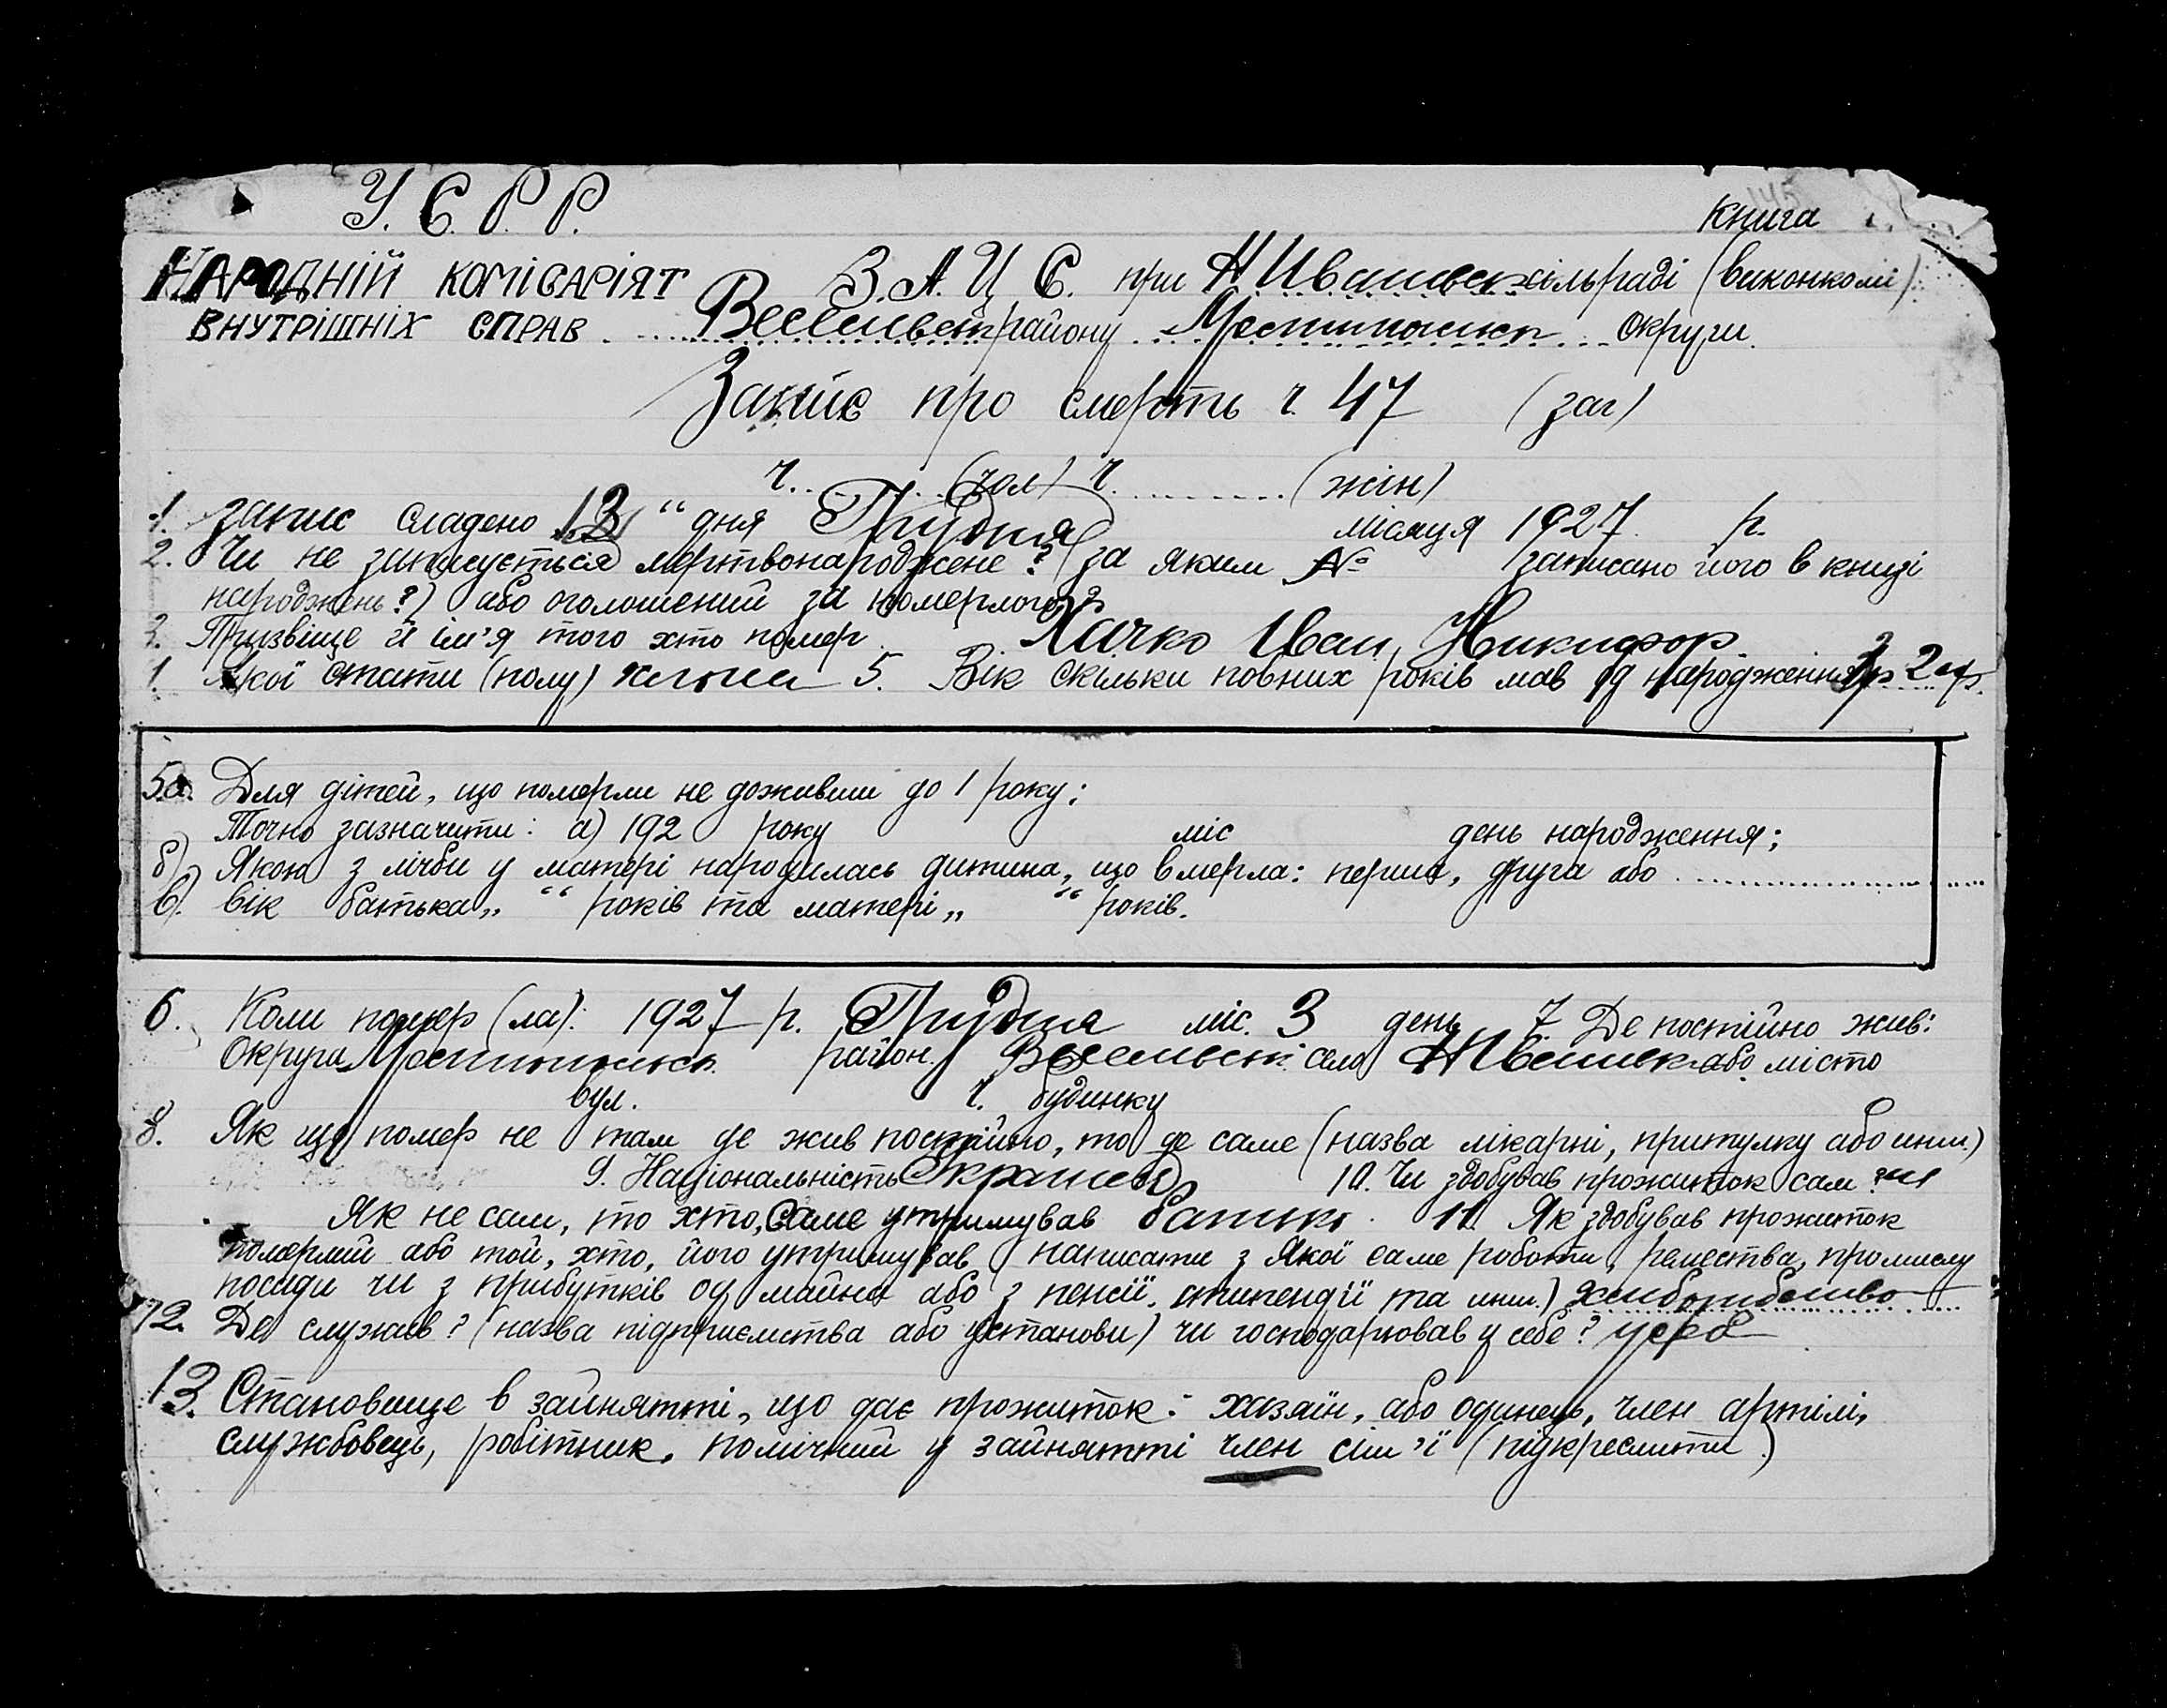 У. С. Р. Р.
Книга
НАРОДНІЙ КОМІСАРІЯТ З. А. Ц С. при Н Иваневск сільраді (виконкомі)
ВНУТРІШНІХ СПРАВ Веселиевск району округи.
Запис про смерть ч. 47 (заг)
ч. (чол) ч. (жін)
1. запис складено 13 “ дня Грудня місяця 1927 р.
2. Чи не записується мертвонароджене? (за яким № записано його в книзі
народжень?) або оголошений за померлого?
3. Прізвіще й ім'я того хто помер Хачко Иван Никифор.
Якої стати (полу) 5. Вік скільки повних років мав од народження 2
5а. Для дітей, що померли не доживши до 1 року:
Точно зазначити: а) 192 року міс день народження;
б) Якою з лічби у матері народилась дитина, що вмерла: перша, друга або
в). вік батька „ “ років та матері „ “ років.
6. Коли помер (ла): 1927 р. Грудня міс. 3 день 7 Де постійно жив:
Округа район. село або місто
вул. ч. будинку
8. Як що помер не там де жив постійно, то де саме (назва лікарні, притулку або инш.)
9. Національність 10. Чи здобував прожиток сам? ні
Як не сам, то хто, саме утримував батько. 11. Як здобував прожиток
померлий або той, хто, його утримував (написати з якої саме роботи, ремества, промислу
посади чи з прибутків од майна або з пенсії, стипендії та инш.)
12. Де служив? (назва підприємства або установи) чи господарював у себе?
13. Становище в зайнятті, що дає прожиток: хазяїн, або одинець, член артілі,
службовець, робітник, помічний у зайнятті член сім'ї (підкреслити)